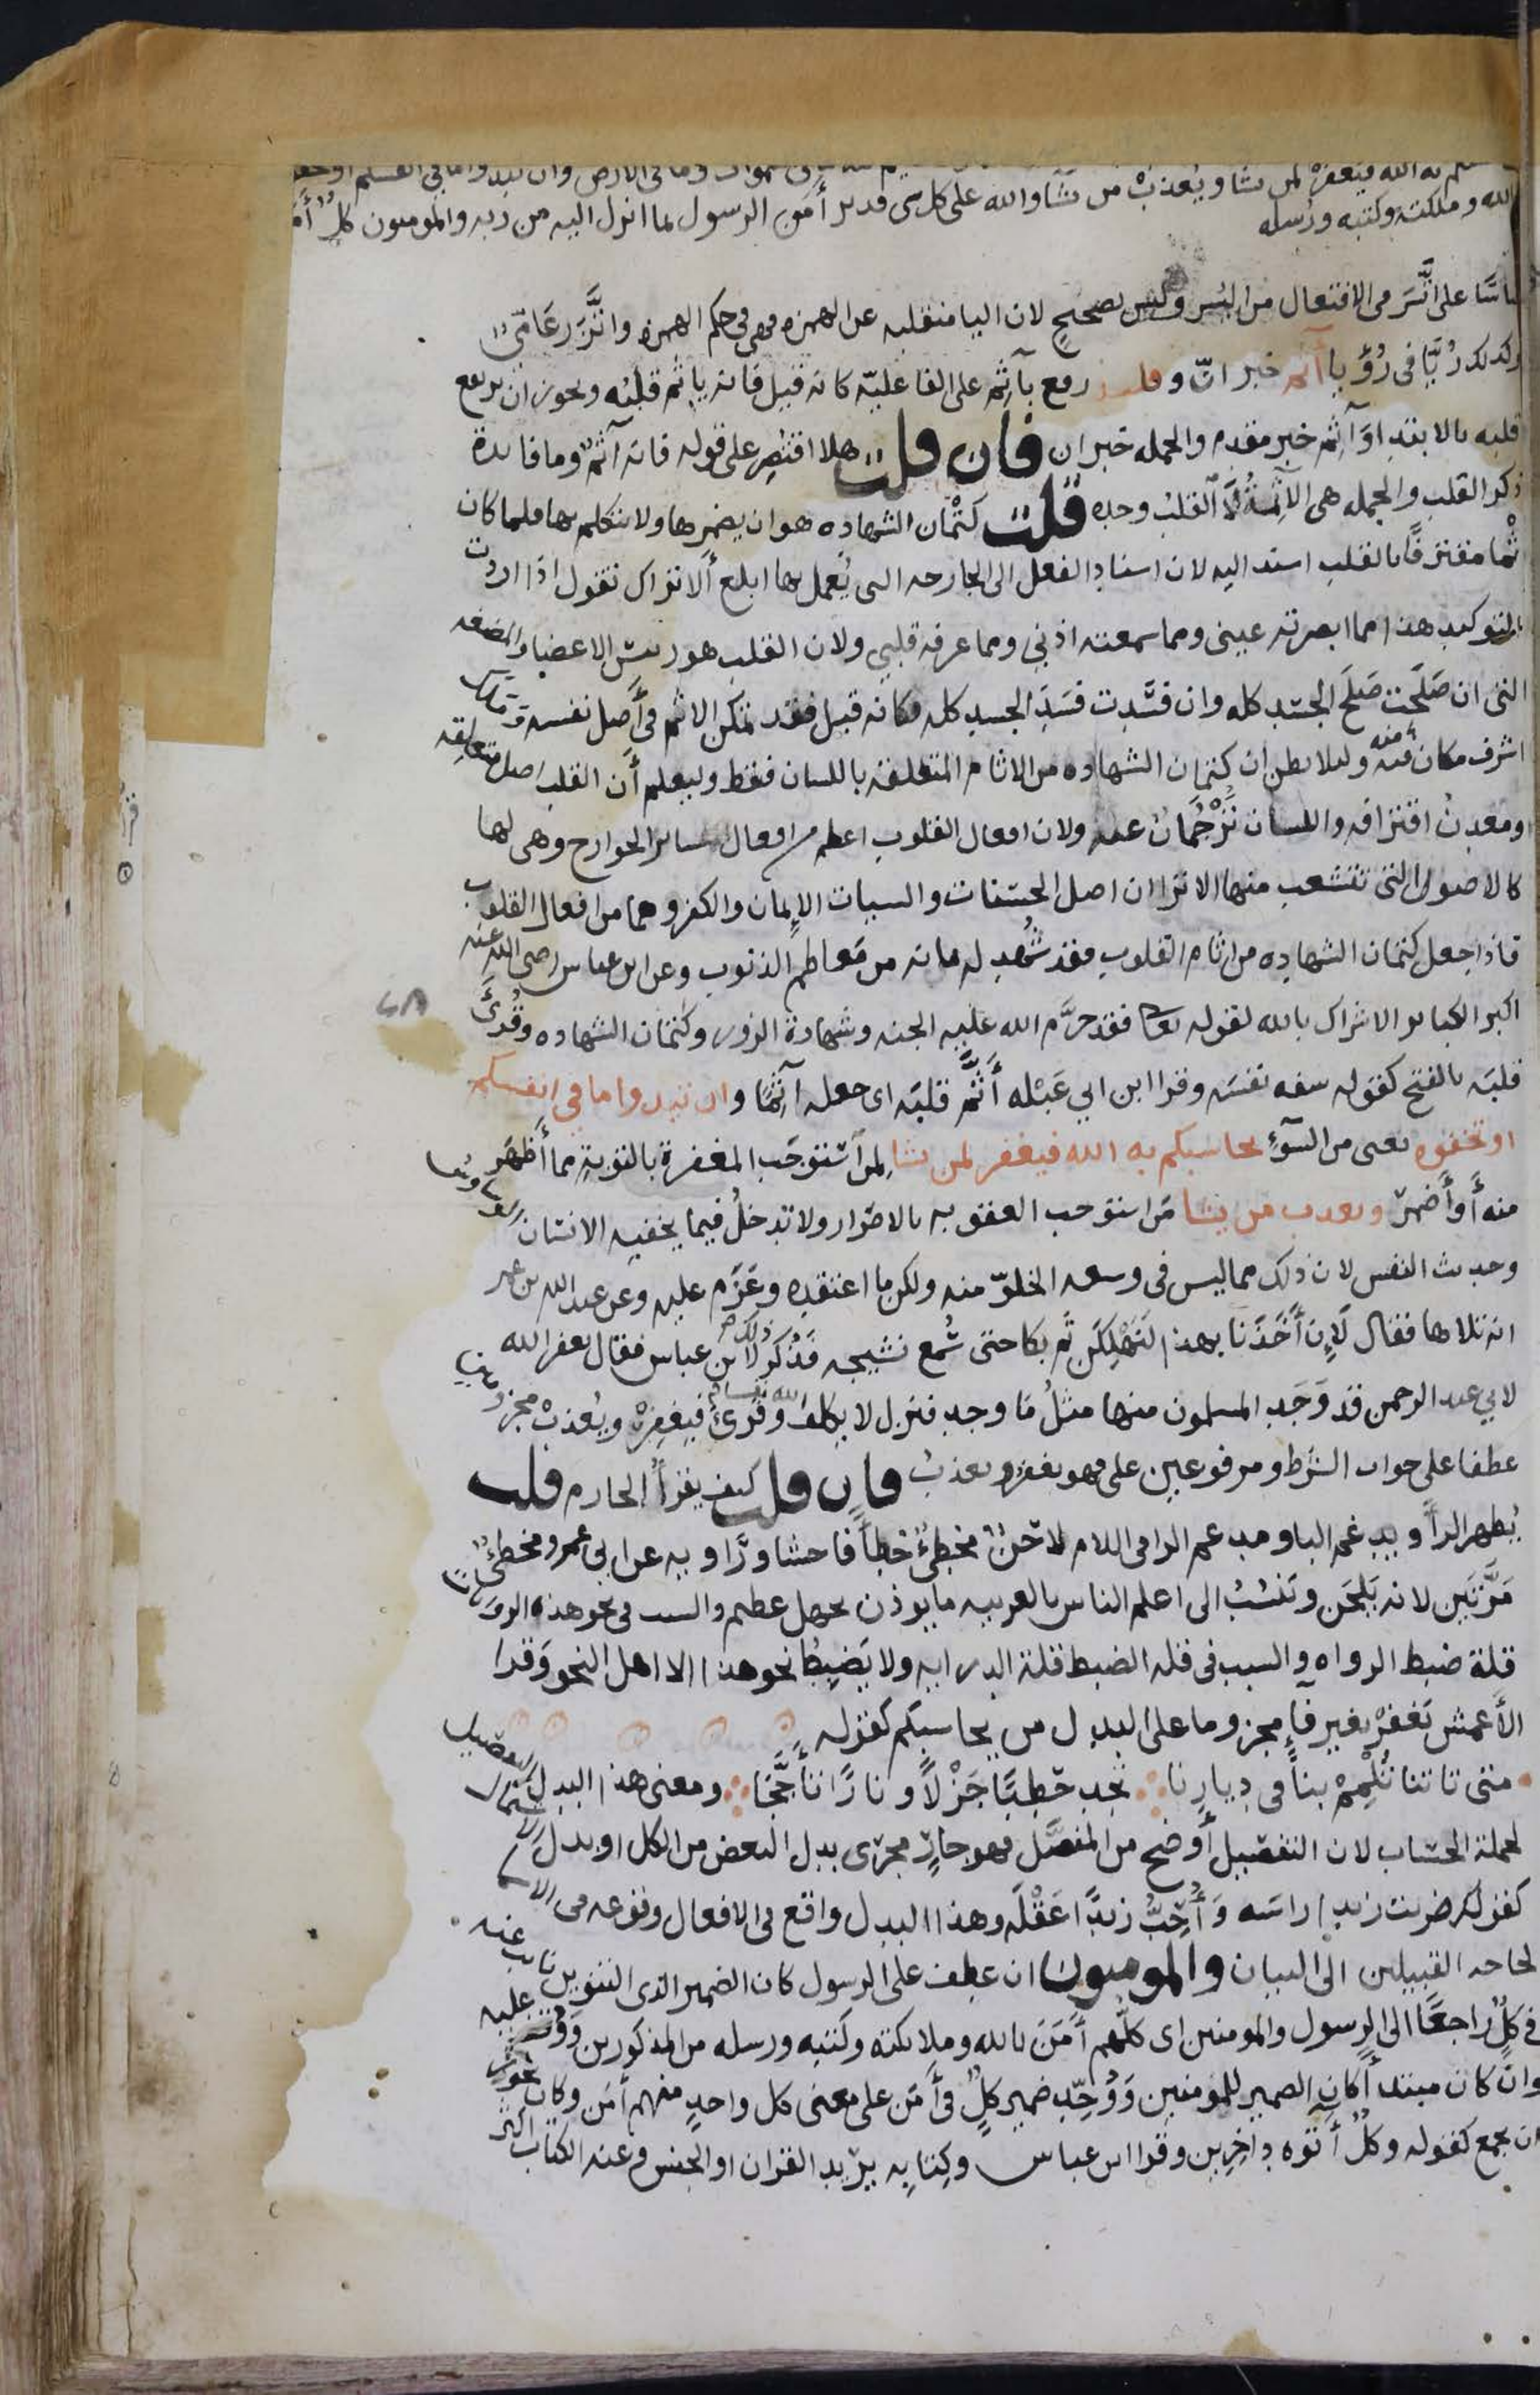 به الله فيغفر لمن يشا ويعذب من يشا والله على كل شى قدير أمن الرسول بما انزل اليه من ربه والمومنون كل أمن
الله وملكته وكتبه ورسله
على اتَّسَر من الافتعال من اليُسر وليس بصحيح لان اليا منقلبه عن الهمزه فهى فى حكم الهمزه واتَّزر عَامّى
وكذلك رُيَّا فى رُؤْيا آثم خبر انّ وقلبه رفع بآثم على الفاعليّه كانه قيل فانه ياثم قلبُه ويجوز ان يرتفع
قلبه بالابتداوَ آثِم خبر مقدم والجمله خبر ان فان قلت هلا اقتُصِر على قوله فانه آثم وما فايدة
ذكر القلب والجمله هى الآثِمَةُ لا القلبُ وحده قلت كتْمان الشهاده هو ان يضمِرها ولا يتكلم بها فلما كان
ثْما مقترفًا بالقلب اسند اليه لان اسناد الفعل الى الجارحه التى يُعمل بها ابلغ ألا تراك تقول اذا اردت
التوكيد هذا مما ابصرته عينى ومما سمعته اذنِي ومما عرفه قلبي ولان القلب هو رئيس الاعضا والمضغه
التى ان صَلَحَت صَلَح الجسد كله وان فسَدت فسَدَ الجسد كله فكانه قيل فقد تمكن الاثم فى أصل نفسه وملك
اشرف مكان منه وليلا يظن ان كتمان الشهاده من الاثام المتعلقه باللسان فقط وليعلم أن القلب اصل متعلقِه
ومَعدِنُ اقترافه واللسان تَرْجُمَان عنه ولان افعال القلوب اعظم من افعال ساير الجوارح وهى لها
كالاصول التى تتشعب منها الا ترا ان اصل الحسنات والسيات الإيمان والكفر وهما من افعال القلوب
فاذا جعل كتمان الشهاده من اثام القلوب فقد شُهِد له بانه من مَعاظم الذنوب وعن ابن عباس رضى الله عنه
اكبر الكباير الاشراك بالله لقوله تعالى فقد حرَّم الله عليه الجنه وشهادة الزور وكتمان الشهاده وقُرِئَ
قلبَه بالفتح كقوله سفه نفسَه وقرا ابن ابي عَبْله أَثَّم قلبَه اى جعله آثِمًا وان تبدوا ما في انفسكم
او تخفوه يعنى من السّوء يحاسبكم به الله فيغفر لمن يشا لِمن استوجَب المغفرة بالتوبة مما أَظهَر
منه أو أضمرَ ويعذب من يشا مَن استوجب العقوبه بالاصرار ولا تدخلُ فيما يخفيه الانسان الوساوس
وحديث النفس لان ذلك مما ليس فى وسعه الخلوّ منه ولكن ما اعتقده وعَزَم عليه وعن عبد الله بن عمر
انه تلاها فقال لَإن أَخَذَنا بهذا لَنَهْلِكَن ثم بكا حتى سُمع نشيجه فذُكر ذلك لابن عباس فقال يغفر الله
لابي عبد الرحمن قد وَجَد المسلمون منها مثلُ مَا وجد فنزل لا يكلف الله نفسا وقُرِئ فيغفرْ ويعذبْ مجزومين
عطفا على جواب الشرط ومرفوعين على فهو يغفرُ ويعذبُ فان قلت كيف يقرأُ الجازم قلت
يُظهر الرأ ويدغم البا ومدغم الرا فى اللام لاحِنٌ مخطِئٌ خطأً فاحشا ورَاويه عن ابى عمرو مخطِئٌ
مَرَّتَين لانه يَلحَن ويَنسُبُ الى اعلم الناس بالعربيه ما يوذن بجهل عظيم والسبب فى نحو هذه الروايات
قلة ضبط الرواه والسبب فى قله الضبط قلة الدرايه ولا يَضبِطُ نحو هذا الا اهل النحو وَقرا
الأعمش يَغفرْ بغير فاٍ مجزوما على البدل من يحاسبكم كقوله
متى تاتنا تُلْمِمْ بنا فى دِيارِنا تجد حَطبًا جَزْلاً ونارًا تأَجَّجَا ومعنى هذا البدل التفصيل
لجملة الحساب لان التفصيل أوضح من المفصَّل فهو جارٍ مجرَى بدل البعض من الكل او بدل الاشتمال
كقولك ضربت زيدا راسَه وَأُحِبُّ زيدًا عَقْلَه وهذا البدل واقع فى الافعال وقوعه فى الاسما
لحاجه القبيلين الى البيان والمومنون ان عطف على الرسول كان الضمير الذى التنوين نايب عنه
فى كلٍّ راجعًا الى الرسول والمومنين اى كلّهم أَمَنَ بالله وملايكته وكتبه ورسله من المذكورين وَوُقف عليه
وان كان مبتدأ كان الضمير للمومنين وَوُحِّد ضمير كلٍّ فى أمَن على معنى كل واحدٍ منهم أمَن وكان يجوز
ان يجمع كقوله وكلٌّ أتوه داخِرِين وقرا ابن عباس وكِتابِه يريد القران او الجنس وعنه الكتاب اكثر